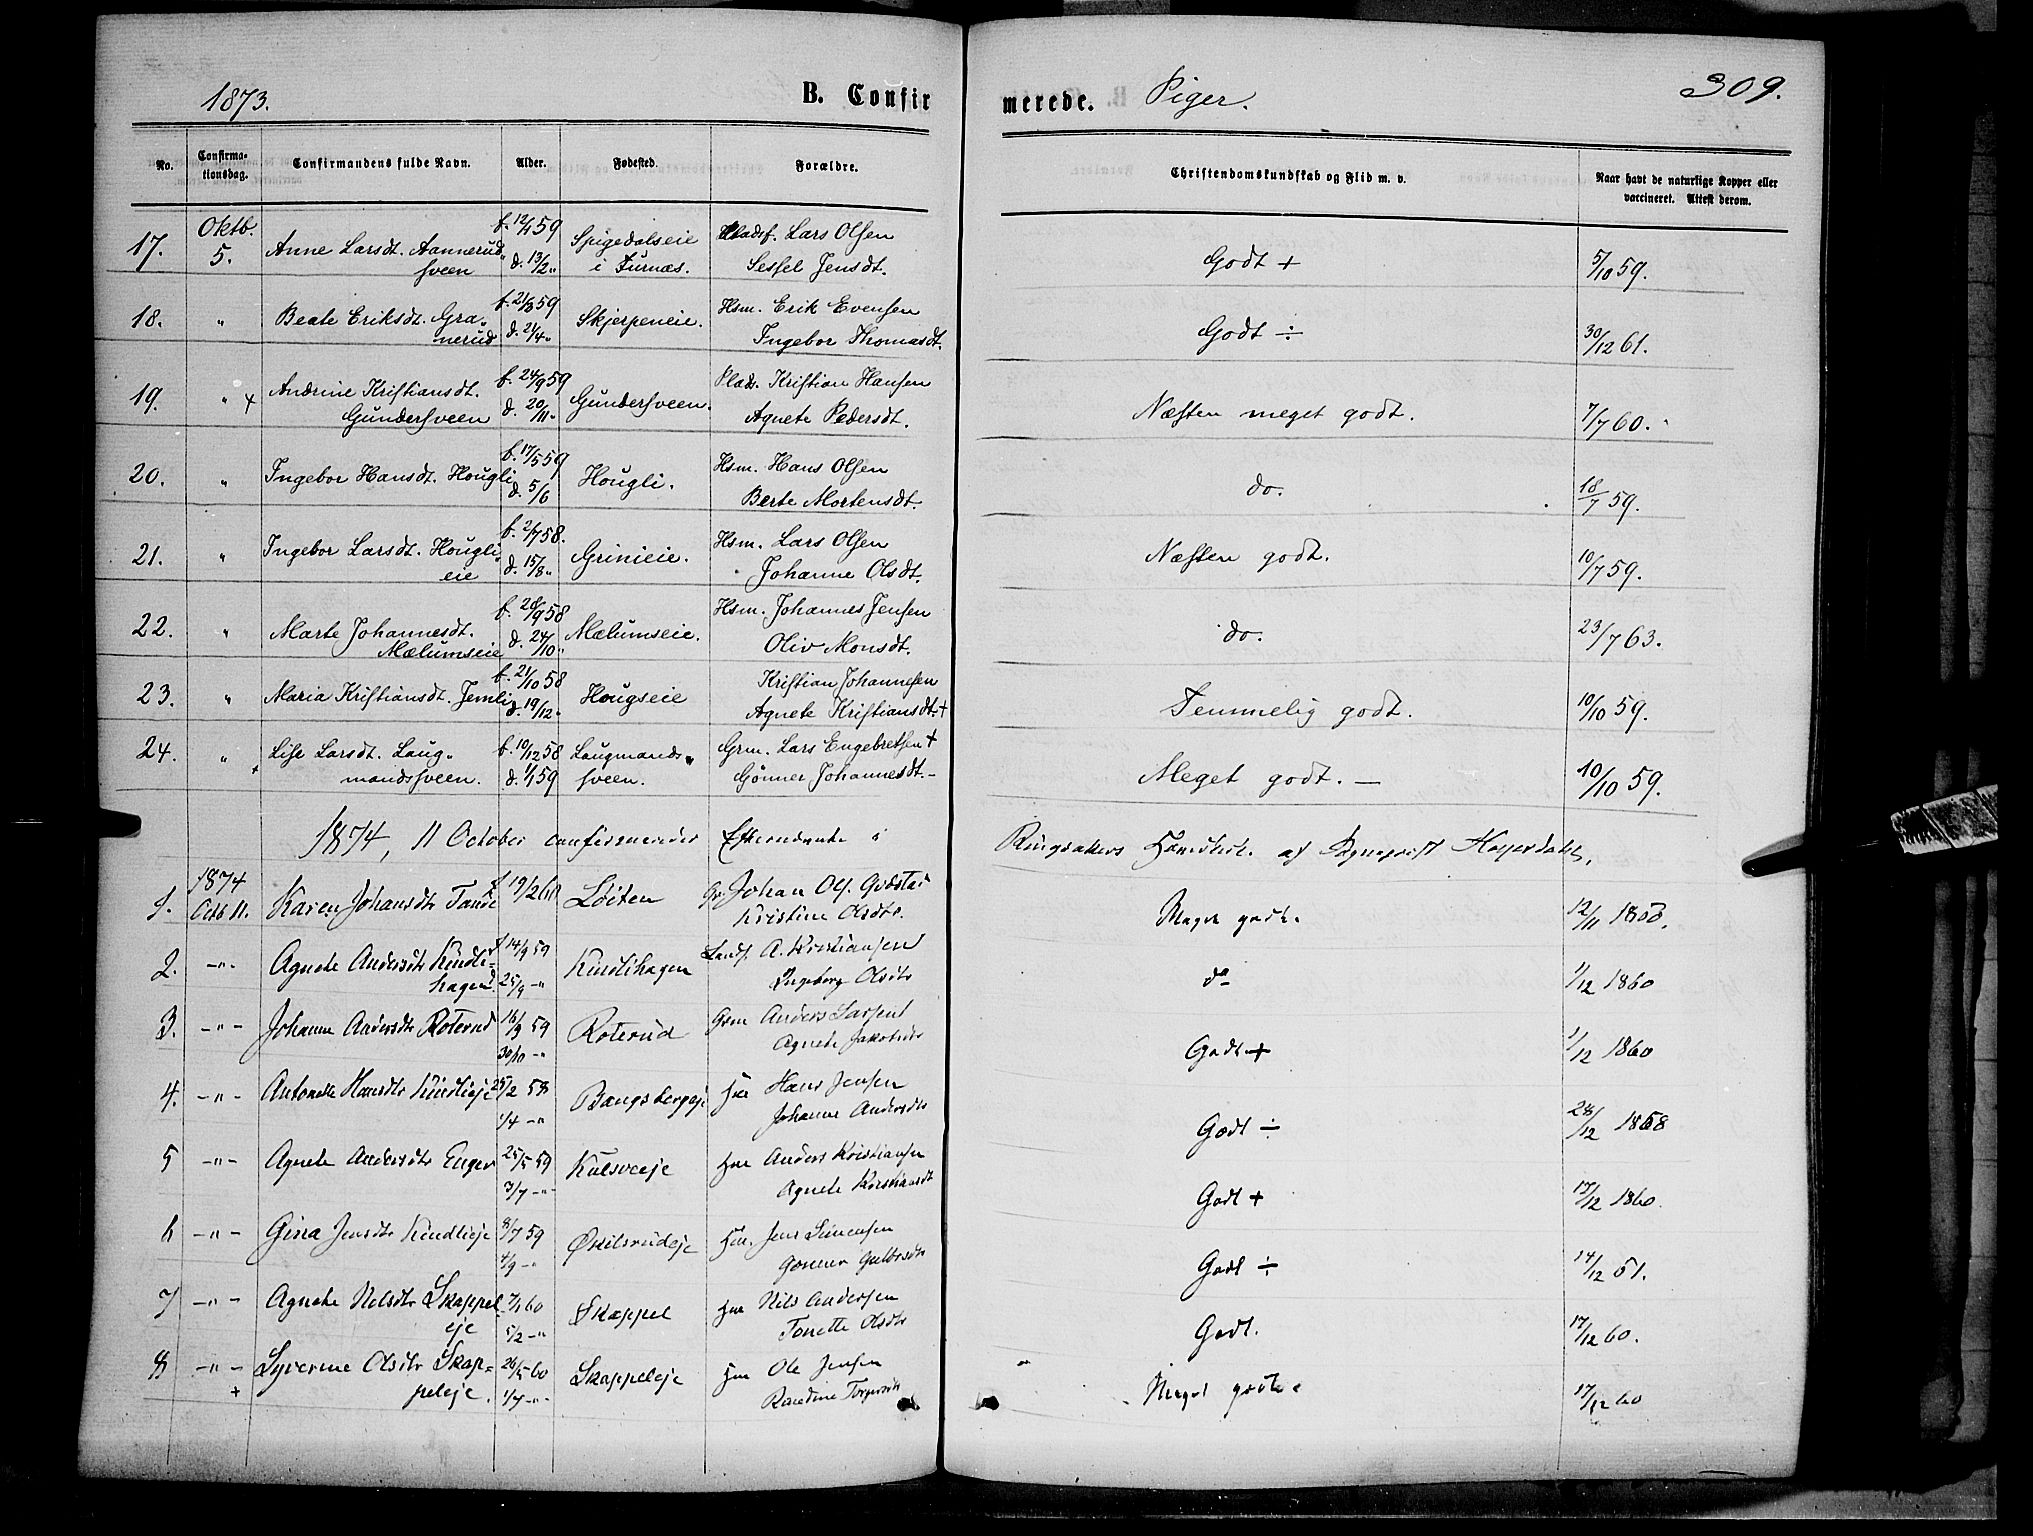 1873.
B. Confir
merede.
Piger.
309.
No.
Confirma-
tionsdag.
Confirmandens fulde Navn.
Alder.
Fødested.
Forældre.
Christendomskundskab og Flid m. v.
Naar havt de naturlige Kopper eller
vaccineret. Attest derom.
17. Oktb. 5. Anne Larsdt. Aannerud- f. 12/1 59 Spigedalseie Pladsf. Lars Olsen Godt + 5/10 59.
sveen d. 13/2 " i Furnæs. Sessel Jensdt.
18. " Beate Eriksdt. Gra- f. 21/3 59 Skjerpeneie. Hsm. Erik Evensen Godt ÷ 30/12 61.
nerud d. 21/4 " Ingebor Thomasdt.
19. " + Andrine Kristiansdt. f. 24/9 59 Gundersveen. Plads. Kristian Hansen Næsten meget godt. 7/7 60.
Gundersveen d. 20/11 " Agnete Pedersdt.
20. " Ingebor Hansdt. Hougli f. 17/5 59 Hougli. Hsm. Hans Olsen do. 18/7 59.
d. 5/6 Berte Mortensdt.
21. " Ingebor Larsdt. Hougli- f. 2/7 58. Grinieie. Hsm. Lars Olsen Næsten godt. 10/7 59.
eie d. 15/8 " Johanne Olsdt.
22. " Marte Johannesdt. f. 28/9 58 Mælumseie. Hsm. Johannes Jensen do. 23/7 63.
Mælumseie d. 24/10 " Oliv Monsdt.
23. " Maria Kristiansdt. Jemli f. 21/10 58 Hougseie Kristian Johannesen Temmelig godt. 10/10 59.
d. 19/12 " Agnete Kristiansdt. +
24. " + Lise Larsdt. Laug- f. 10/12 58 Laugmands- Grm. Lars Engebretsen + Meget godt. — 10/10 59.
mandsveen. d. 1/1 59 sveen. Gönner Johannesdt. -
1874, 11 October confirmerede Efternævnte i Ringsakers af Sognepræst Heyerdahl.
1. 1874 Octb 11. Karen Johansdtr Tande f 19/2 60 Löiten Gr. Johan Ols. Godstad Meget godt. 12/11 1860.
Kristine Olsdtr.
2. -"- Agnete Andersdtr Kindli- f 14/9 59 Kindlihagen A. Kristiansen do 1/12 1860
hagen d. 25/9 -" Ingeborg Olsdtr
3. -"- Johanne Andersdtr Roterud 16/9 59 Roterud Grm Anders Larsen Godt + 1/12 1860
30/10 -" Agnete Jakobsdtr
4. -"- Antonette Hansdtr Kindlieje 25/2 58 Bangsbergeje Hm Hans Jensen Godt ÷ 28/12 1868
1/4 -" Johanne Andersdtr
5 -"- Agnete Andersdtr Enger 25/5 59 Kulsveeje Hm Anders Kristiansen Godt + 17/12 1860.
3/7 -"- Agnete Kristiansdt
6 -"- Gina Jensdtr Kindlieje 8/7 59 Øskilsrudeje Hm. Jens Simensen Godt ÷ 14/12 61.
4/9 -" Gönner Gulbrsdtr
7 -"- Agnete Nilsdtr Skappel 7/1 60 Skappel Hm Nils Andersen Godt. 17/12 60.
eje 5/2 -" Tonette Olsdtr
8 -"- + Syverine Olsdtr Skap- 26/5 60 Skappeleje Hm Ole Jensen Meget godt. 17/12 60
peleje. 1/7 -"-